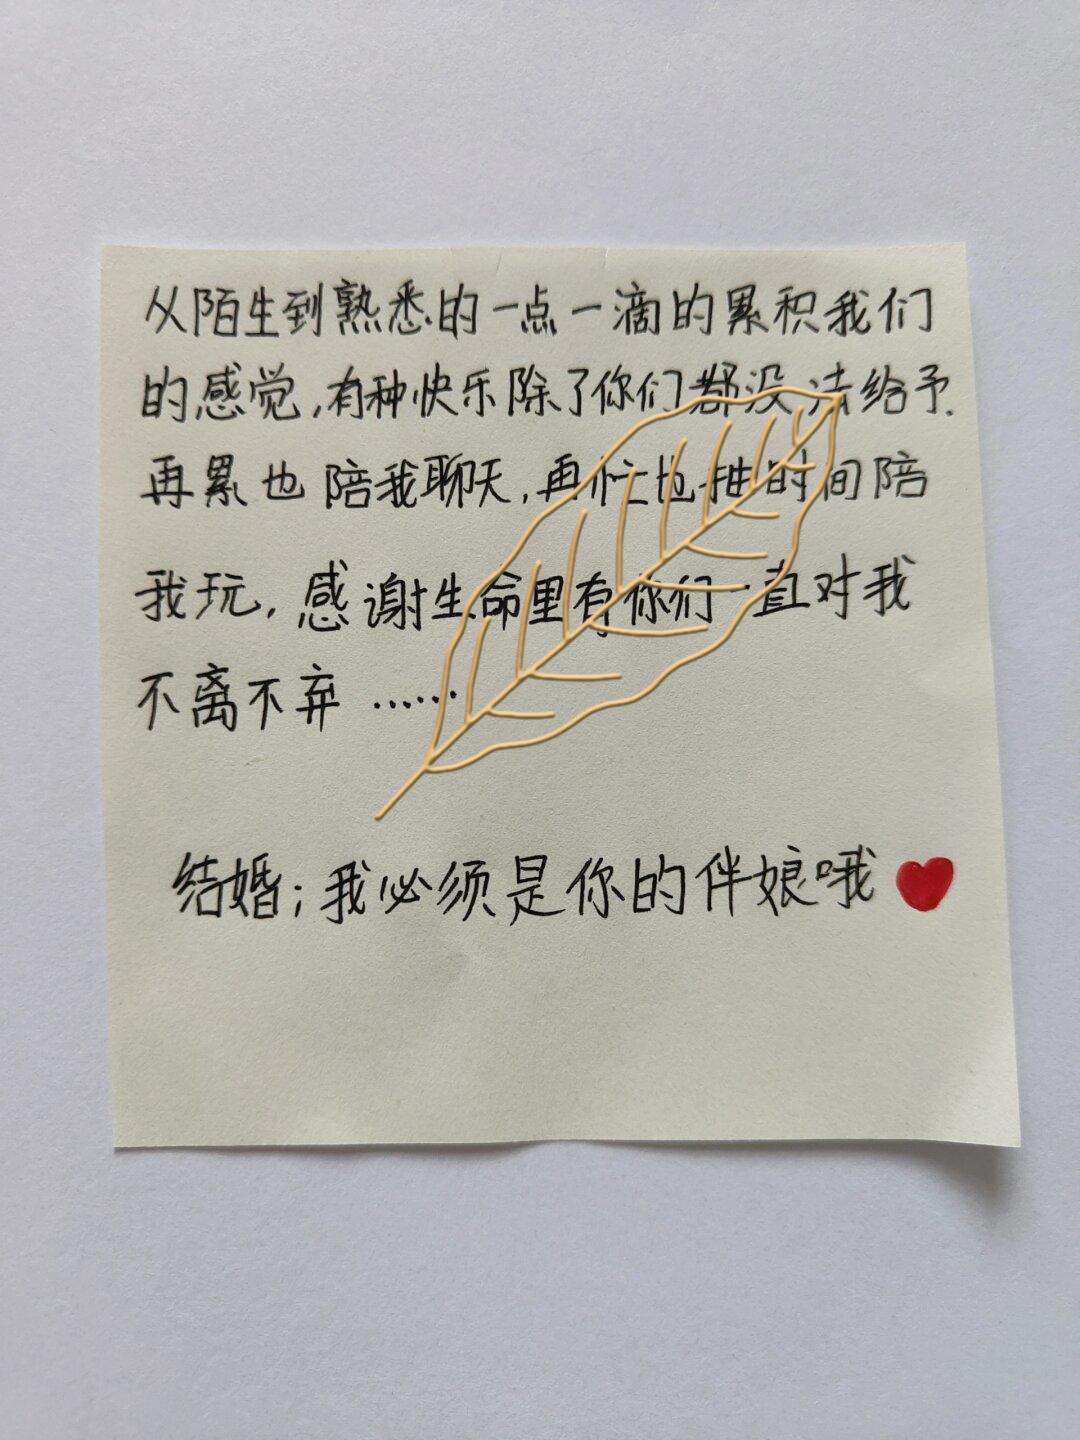 从陌生到熟悉的一点一滴的累积我们
的感觉,有种快乐除了你们都没法给予.
再累也陪我聊天,再忙也抽时间陪
我玩,感谢生命里有你们一直对我
不离不弃……
结婚;我必须是你的伴娘哦